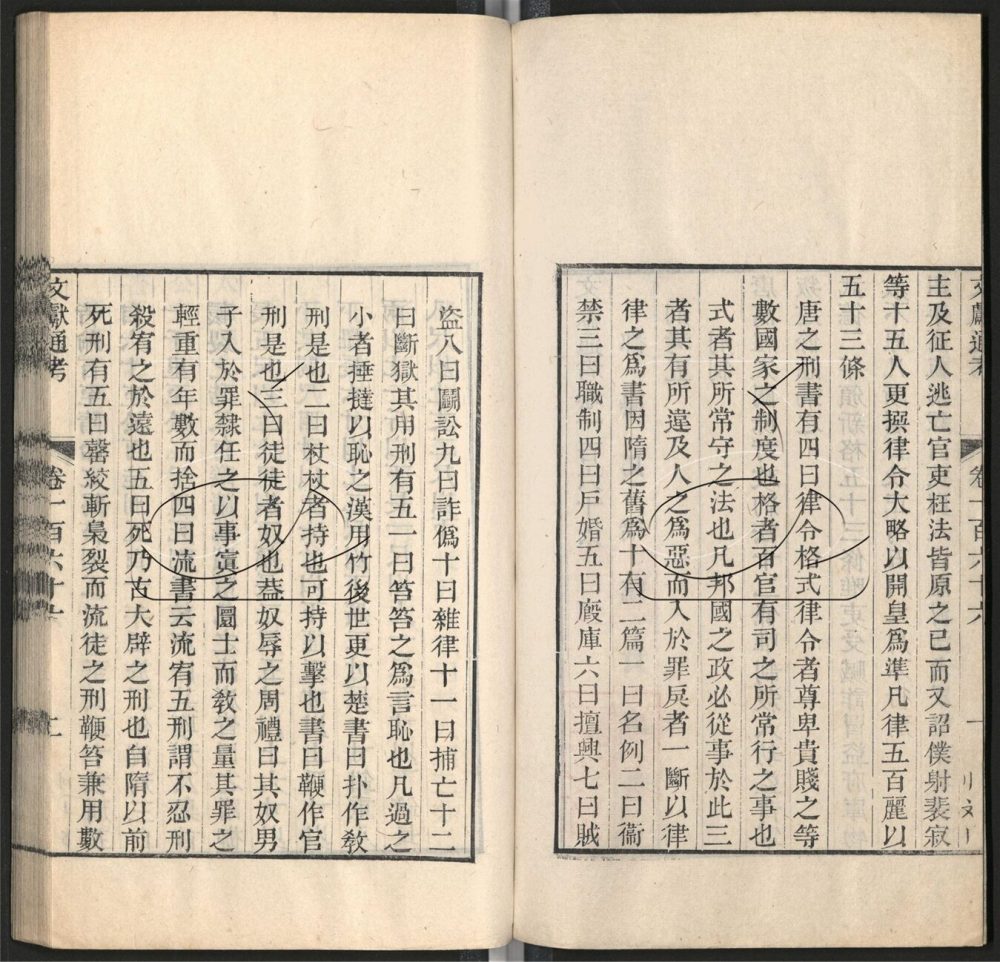 文獻通考 卷一百六十六 一
主及征人逃亡官吏枉法皆原之已而又詔僕射裴寂
等十五人更撰律令大略以開皇爲準凡律五百麗以
五十三條
唐之刑書有四曰律令格式律令者尊卑貴賤之等
數國家之制度也格者百官有司之所常行之事也
式者其所常守之法也凡邦國之政必從事於此三
者其有所違及人之爲惡而入於罪戾者一斷以律
律之爲書因隋之舊爲十有二篇一曰名例二曰衞
禁三曰職制四曰戶婚五曰廄庫六曰擅興七曰賊
盜八曰鬬訟九曰詐僞十曰雜律十一曰捕亡十二
曰斷獄其用刑有五一曰笞笞之爲言恥也凡過之
小者捶撻以恥之漢用竹後世更以楚書曰扑作敎
刑是也二曰杖杖者持也可持以擊也書曰鞭作官
刑是也三曰徒徒者奴也葢奴辱之周禮曰其奴男
子入於罪隸任之以事寘之圜土而敎之量其罪之
輕重有年數而捨四曰流書云流宥五刑謂不忍刑
殺宥之於遠也五曰死乃古大辟之刑也自隋以前
死刑有五曰罄絞斬梟裂而流徒之刑鞭笞兼用數
文獻通考 卷一百六十六 二